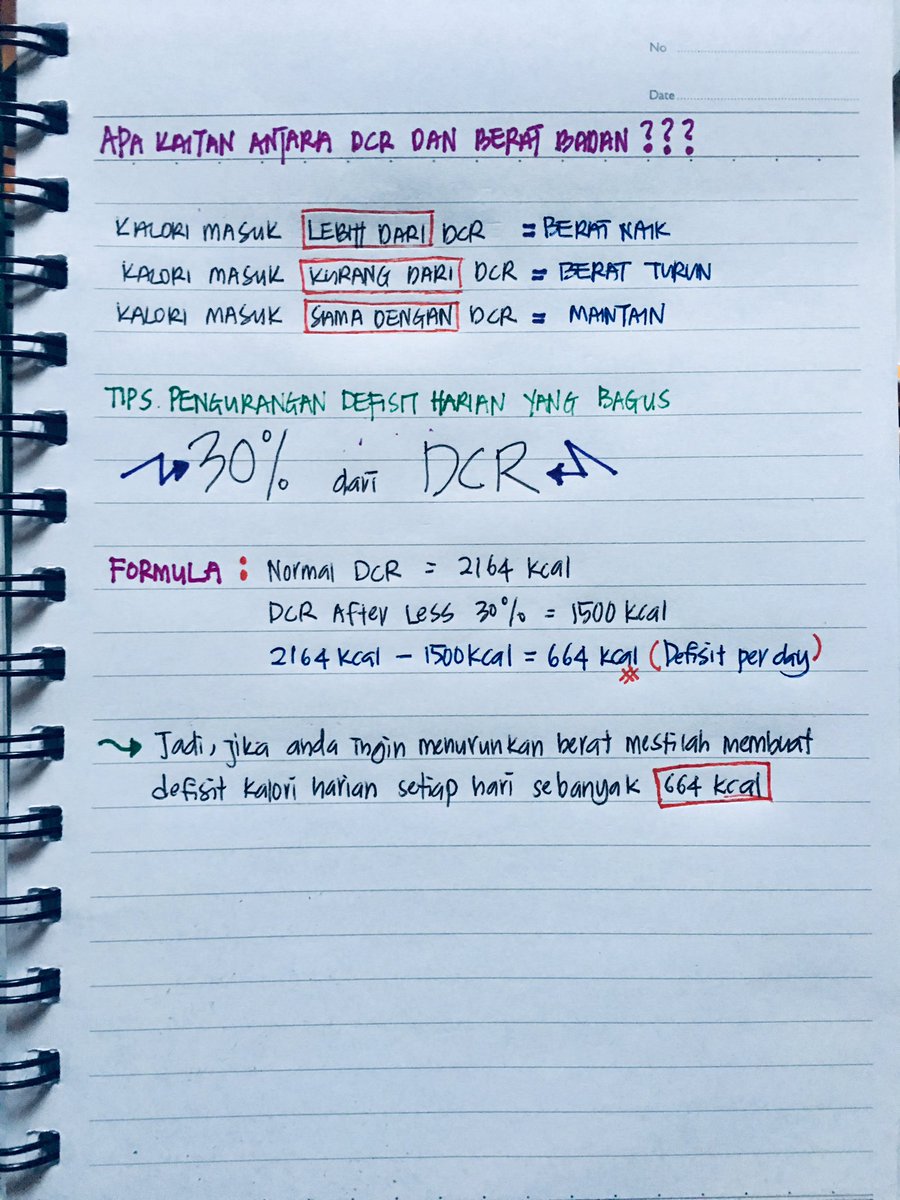 No
Date
APA KAITAN ANTARA DCR DAN BERAT BADAN ???
KALORI MASUK LEBIH DARI DCR = BERAT NAIK
KALORI MASUK KURANG DARI DCR = BERAT TURUN
KALORI MASUK SAMA DENGAN DCR = MAINTAIN
TIPS PENGURANGAN DEFISIT HARIAN YANG BAGUS
30% dari DCR
FORMULA : Normal DCR = 2164 kcal
DCR After Less 30% = 1500 kcal
2164 kcal - 1500 kcal = 664 kcal (Defisit per day)
Jadi, jika anda ingin menurunkan berat mestilah membuat
defisit kalori harian setiap hari sebanyak 664 kcal